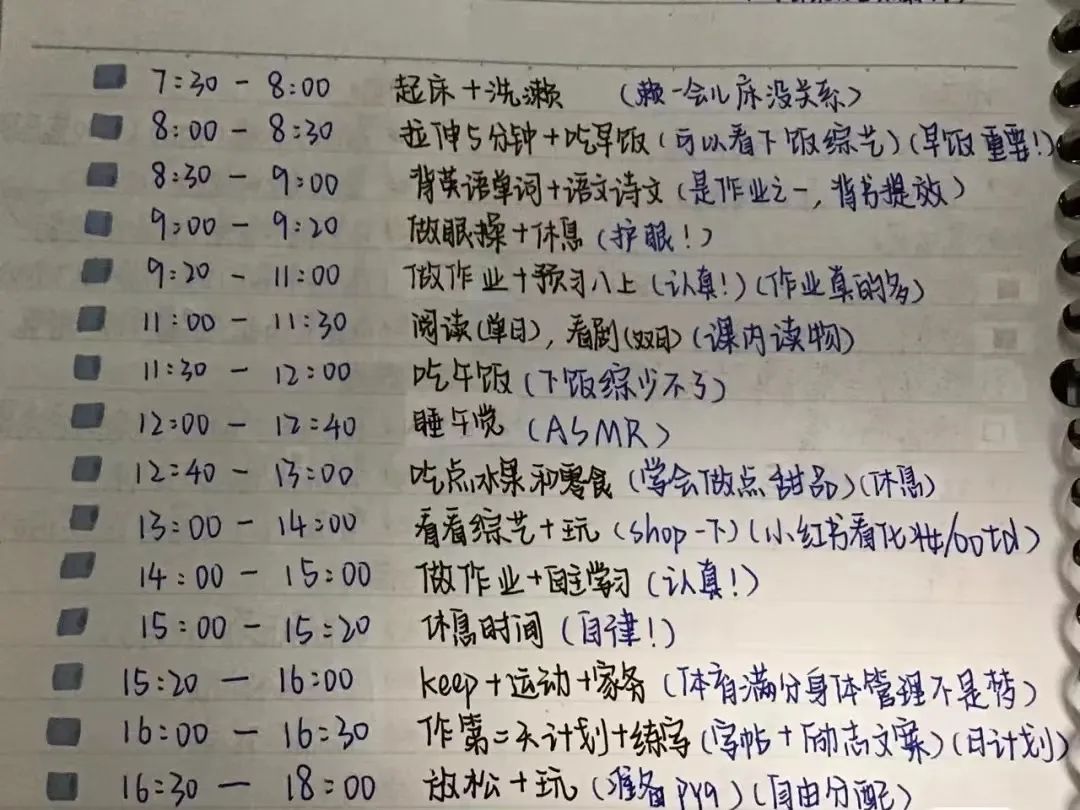 7:30 - 8:00 起床+洗濑 (赖一会儿床没关系)
8:00 - 8:30 拉伸5分钟+吃早饭(可以看下饭综艺)(早饭重要!)
8:30 - 9:00 背英语单词+语文诗文(是作业之一,背书提放)
9:00 - 9:20 做眼操+休息(护眼!)
9:20 - 11:00 做作业+预习八上(认真!)(作业真的多)
11:00 - 11:30 阅读(单日),看剧(双日)(课内读物)
11:30 - 12:00 吃午饭(下饭综少不了)
12:00 - 12:40 睡午觉 (ASMR)
12:40 - 13:00 吃点水果和零食(学会做点甜品)(休息)
13:00 - 14:00 看看综艺+玩(shop一下)(小红书看化妆/ootd)
14:00 - 15:00 做作业+自主学习(认真!)
15:00 - 15:20 休息时间(自律!)
15:20 - 16:00 keep+运动+家务(体育满分身体管理不是梦)
16:00 - 16:30 作第二天计划+练字(字帖+励志文案)(日计划)
16:30 - 18:00 放松+玩(准备pyq)(自由分配)